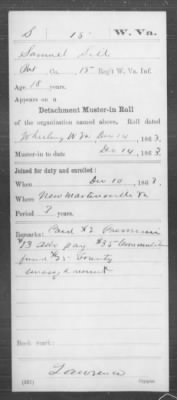 S 15 W. Va.
Samuel Sill
Pvt, Co. 15 Reg't W. Va. Inf.
Age 18 years.
Appears on a
Detachment Muster-in Roll
of the organization named above. Roll dated
Wheeling W Va, Dec 14, 1863.
Muster-in to date Dec 14, 1863.
Joined for duty and enrolled:
When Dec 10, 1863.
Where New Martinsville Va
Period 3 years.
Remarks: Paid $2 Premium
$13 adv pay $35
fund $25 bounty
Book mark:
Lawrence
(361) Copyist.